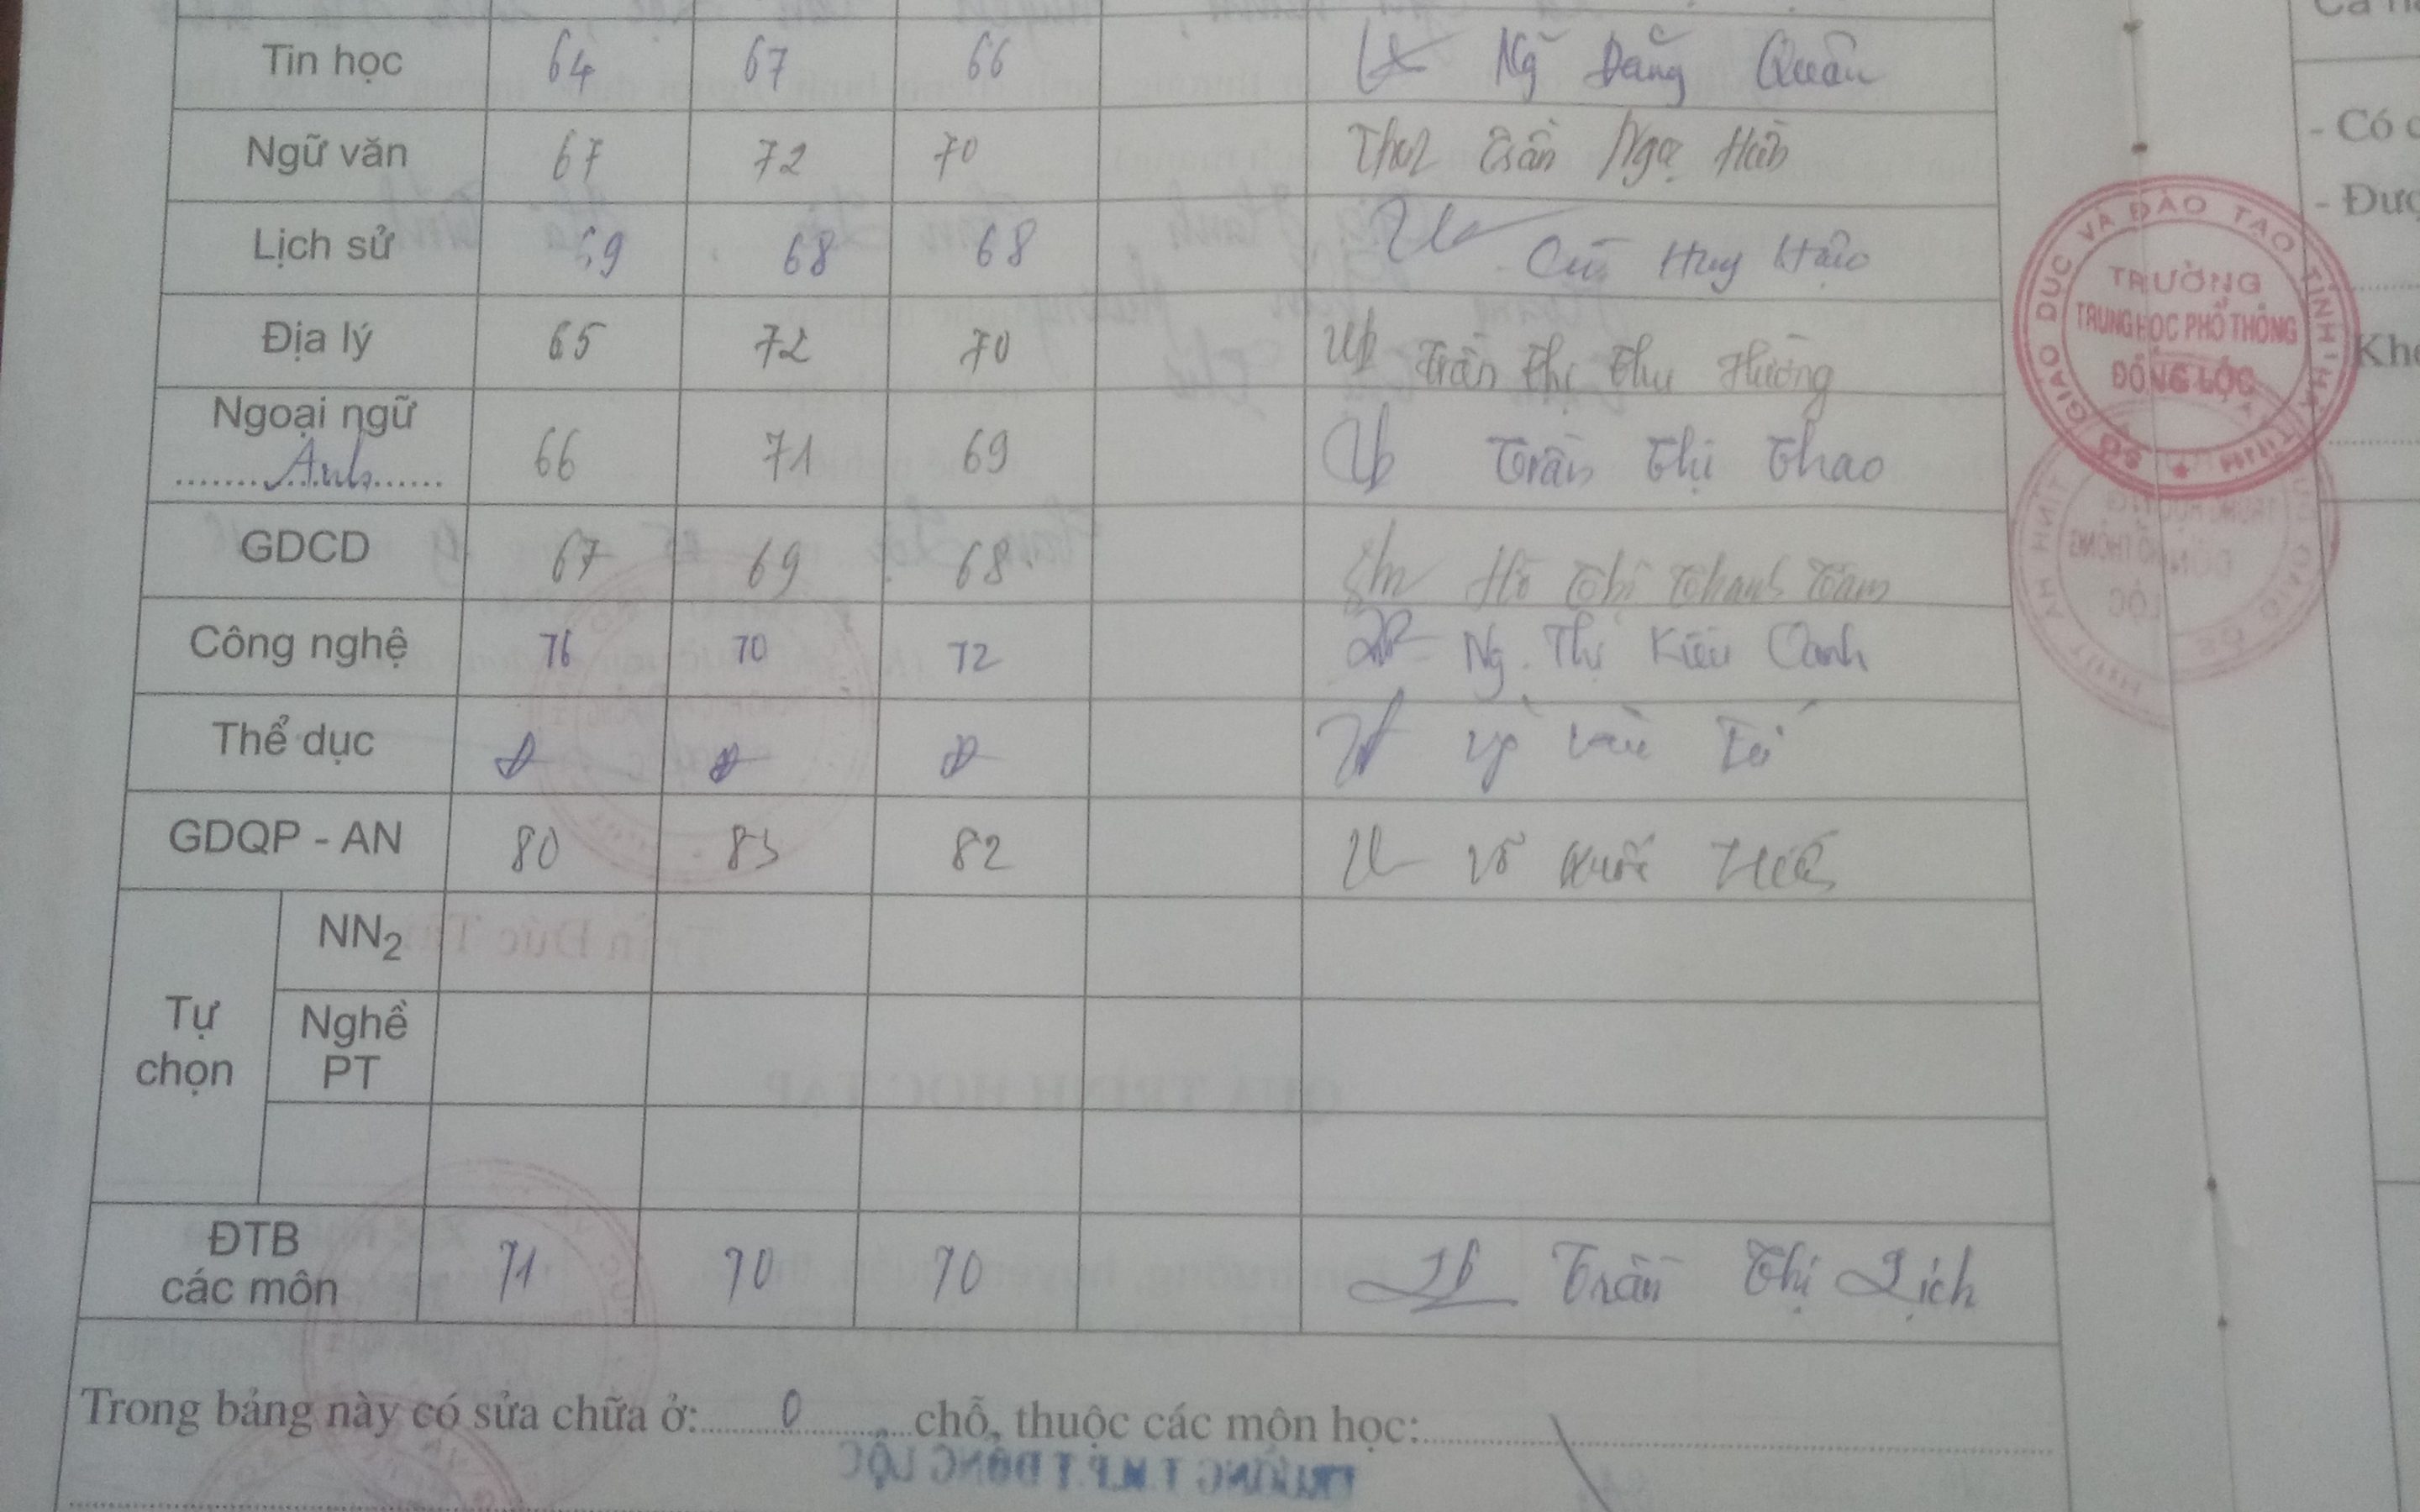 Tin học 64 67 66 Ng Đăng Quân
Ngữ văn 67 72 70 Trần Ngọc
Lịch sử 69 68 68 Huy
Địa lý 65 72 70 Trần Thị Thu Hường
Ngoại ngữ
Anh 66 71 69 Trần Thị Thao
GDCD 67 69 68 Hồ Thị Thanh Tâm
Công nghệ 76 70 72 Ng. Thị Kiều Oanh
Thể dục Đ Đ Đ
GDQP - AN 80 83 82 Võ
Tự chọn
NN2
Nghề PT
ĐTB
các môn 71 70 70 Trần Thị Lịch
Trong bảng này có sửa chữa ở: 0 chỗ, thuộc các môn học:
SỞ GIÁO DỤC VÀ ĐÀO TẠO TỈNH HÀ TĨNH
TRƯỜNG
TRUNG HỌC PHỔ THÔNG
ĐỒNG LỘC
- Có